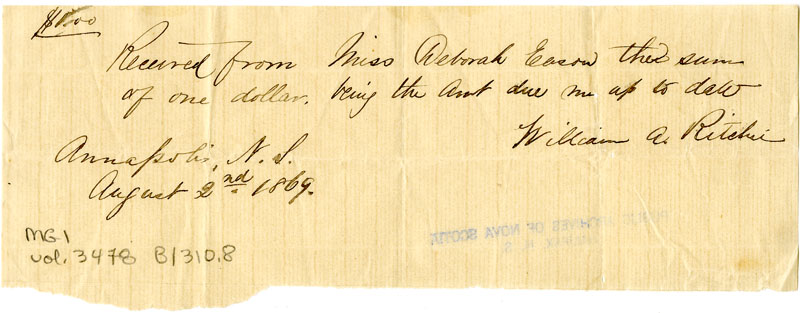 $1.00
Received from Miss Deborah Eason the sum
of one dollar. being the Amt due me up to date
William A. Ritchie
Annapolis, N.S.
August 2nd 1869.
MG1
vol. 3478 B/310.8
PUBLIC ARCHIVES OF NOVA SCOTIA
HALIFAX, N. S.